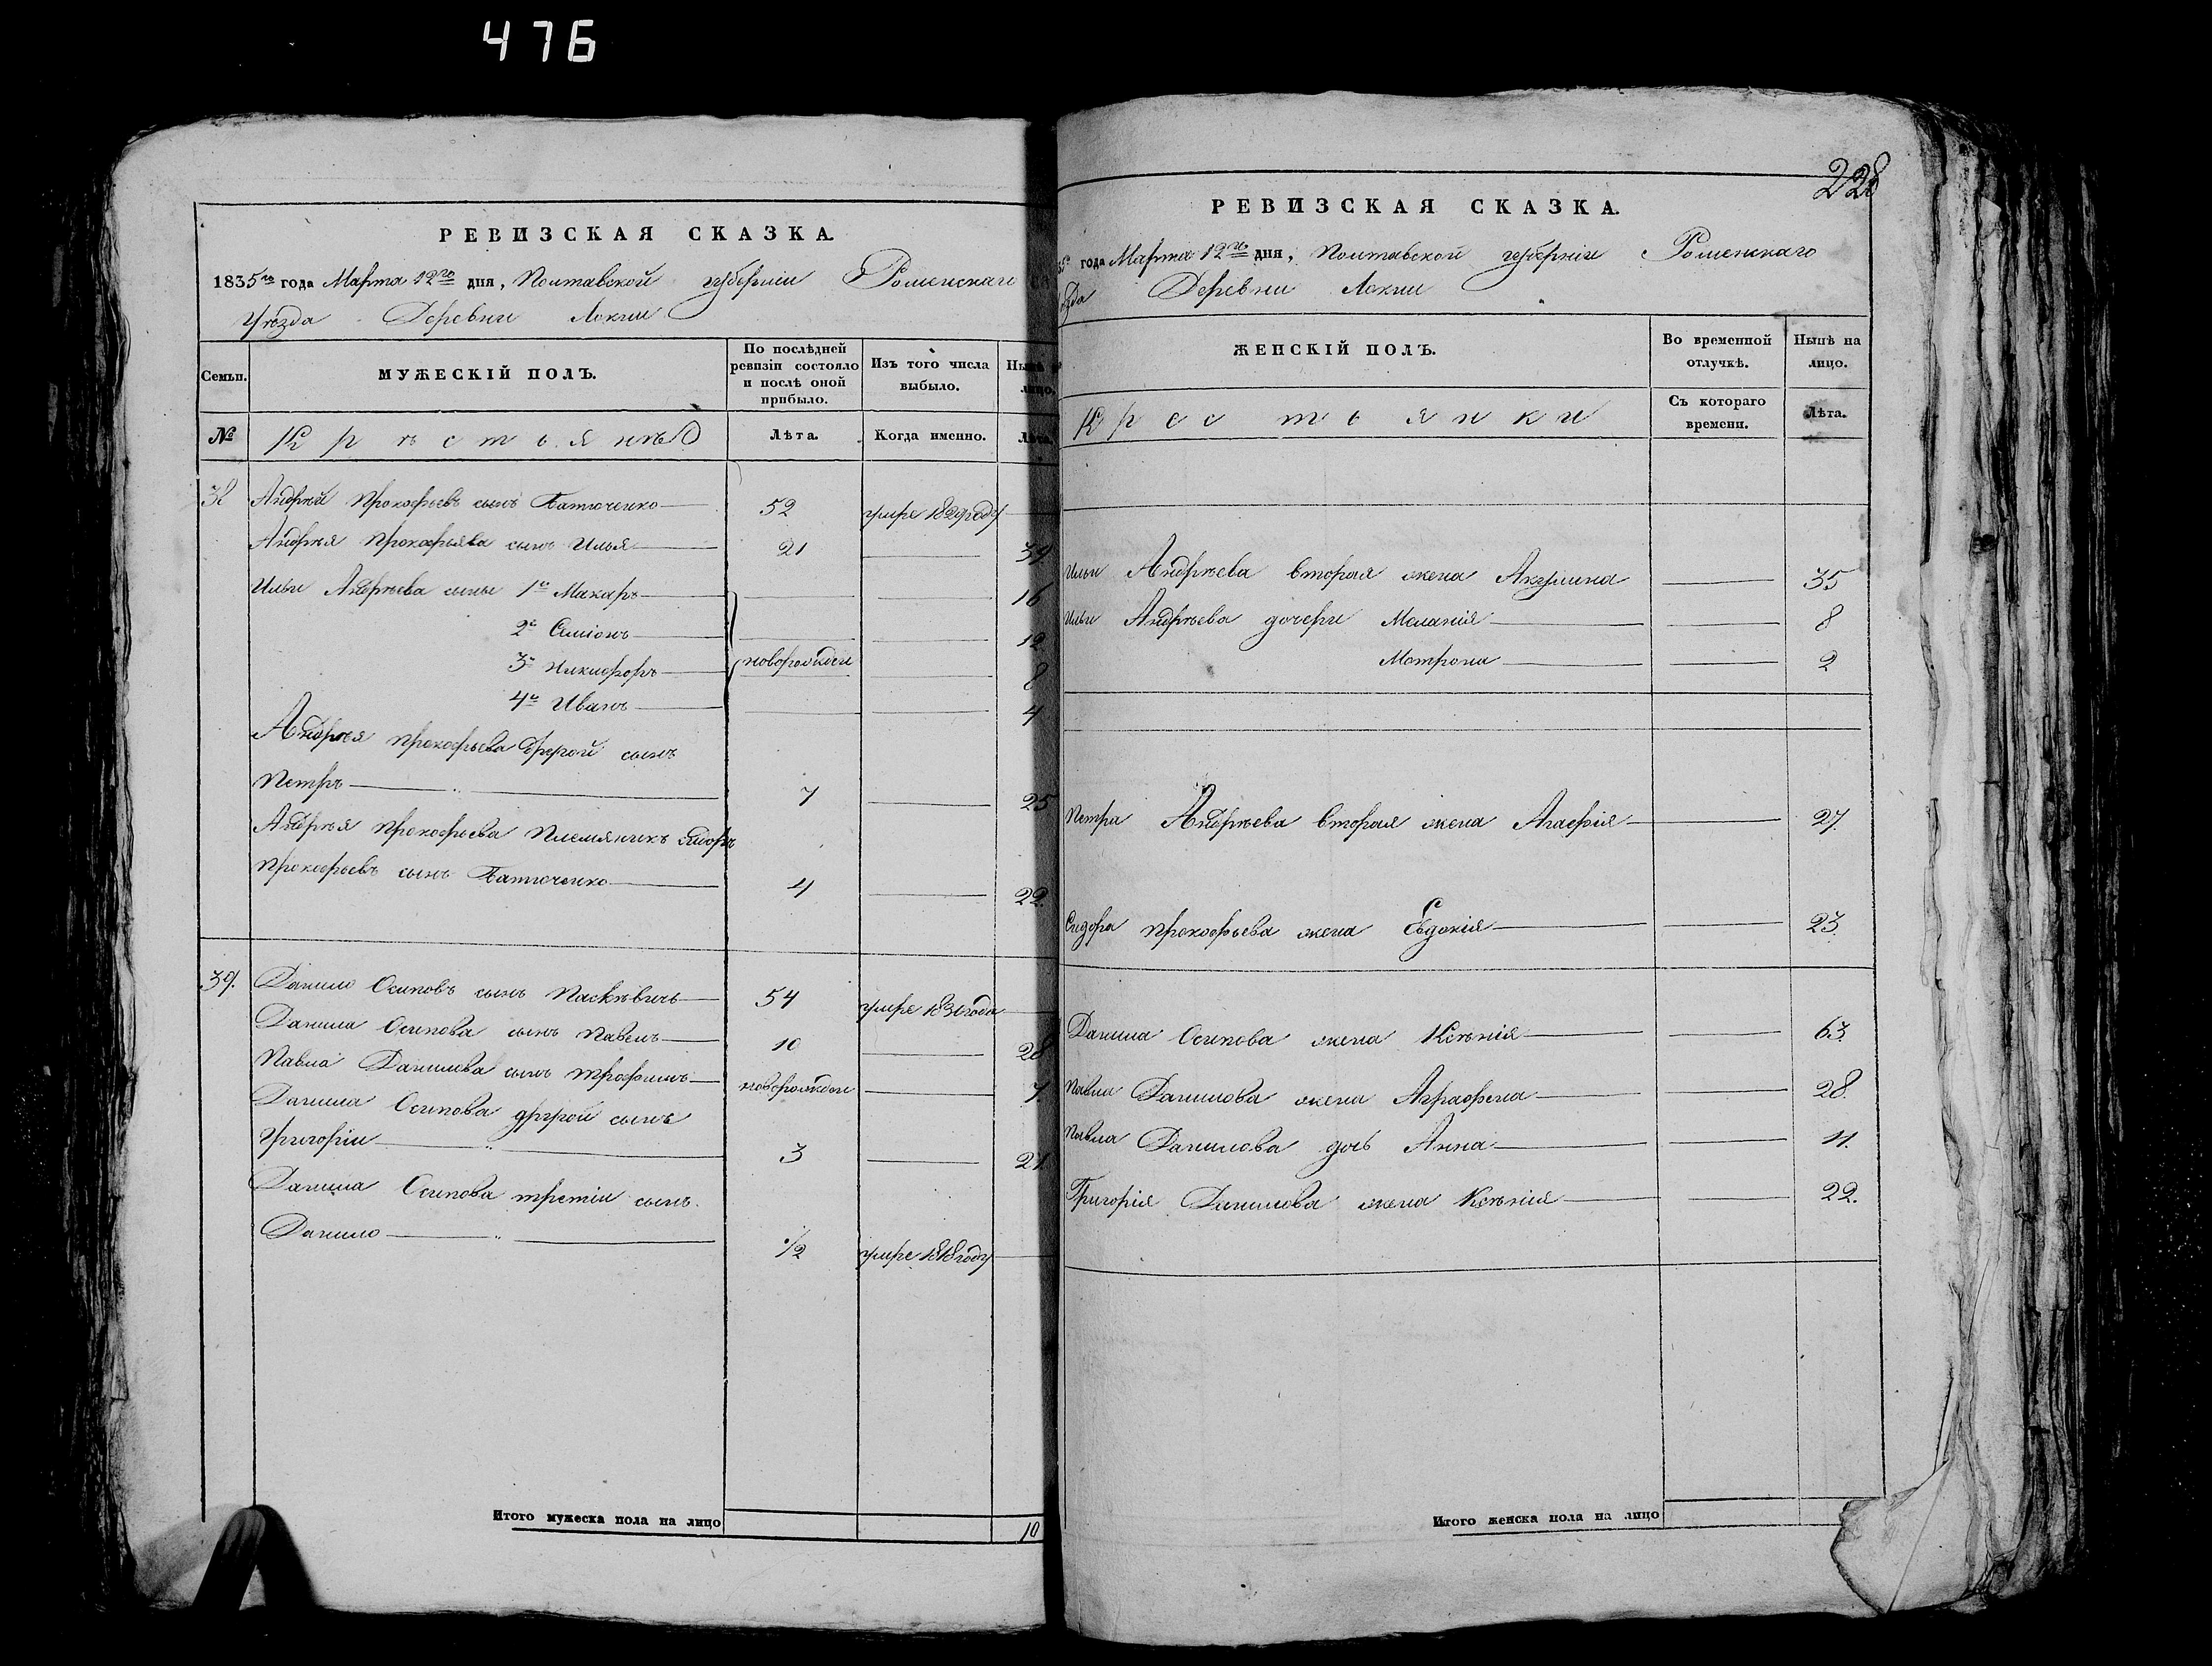 476
РЕВИЗСКАЯ СКАЗКА.
1835го года Марта 12го дня, Полтавской губерніи Роменскаго
Уѣзда Деревни Локни
Семьи. МУЖЕСКІЙ ПОЛЪ. По послѣдней ревизіи состояло и послѣ оной прибыло. Изъ того числа выбыло. Нынѣ на лицо.
№ Крѣстьянъ Лѣта. Когда именно. Лѣта.
38 Андрѣй Прокофьевъ сынъ 52 умре 1829году
Андрѣя Прокофьява сынъ Илья 21 39
Ильи Андрѣева сыны 1й Макаръ 16
2й Семіонъ 12
3й Никифоръ новорожден 8
4й Иванъ 4
Андрѣя Прокофьева другой сынъ
Петръ 7 25
Андрѣя Прокофьева Племяникъ Сидоръ
Прокофьевъ сынъ 4 22.
39. Данило Осиповъ сынъ Паскѣвичъ 54 умре года
Данила Осипова сынъ Павелъ 10 28
Павла Данилева сынъ Трофимъ новорожден 7.
Данила Осипова другой сынъ
Григоріи 3 21.
Данила Осипова третіи сынъ.
Данило 1/2 умре 1818году
Итого мужеска пола на лицо 10
228
РЕВИЗСКАЯ СКАЗКА.
года Марта 12го дня, Полтавской губерніи Роменскаго
Деревни Локни
ЖЕНСКІЙ ПОЛЪ. Во временной отлучкѣ. Нынѣ на лицо.
Кресстьянки Съ котораго времени. Лѣта.
Ильи Андрѣева вторая жена Акулина 35
Ильи Андрѣева дочери Меланія 8
Мотрона 2
Петра Андрѣева вторая жена Агафія 27.
Сидора Прокофьева жена Евдокія 23.
Данила Осипова жена Ксѣнія 63.
Павла Данилова жена Аграфена 28.
Павла Данилова дочь Анна 11.
Григорія Данилова жена Ксѣнія 22.
Итого женска пола на лицо